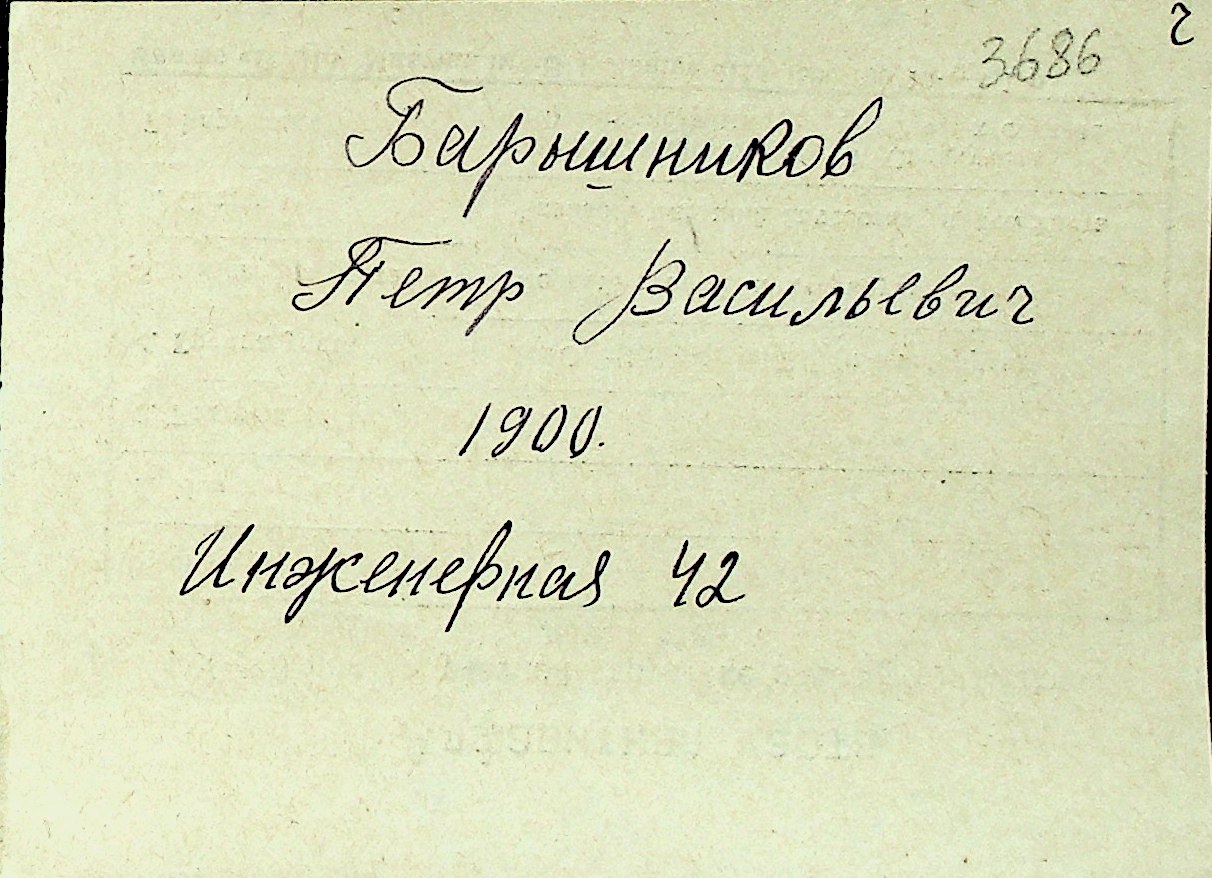 3686 г
Барышников
Петр Васильевич
1900.
Инженерная 42